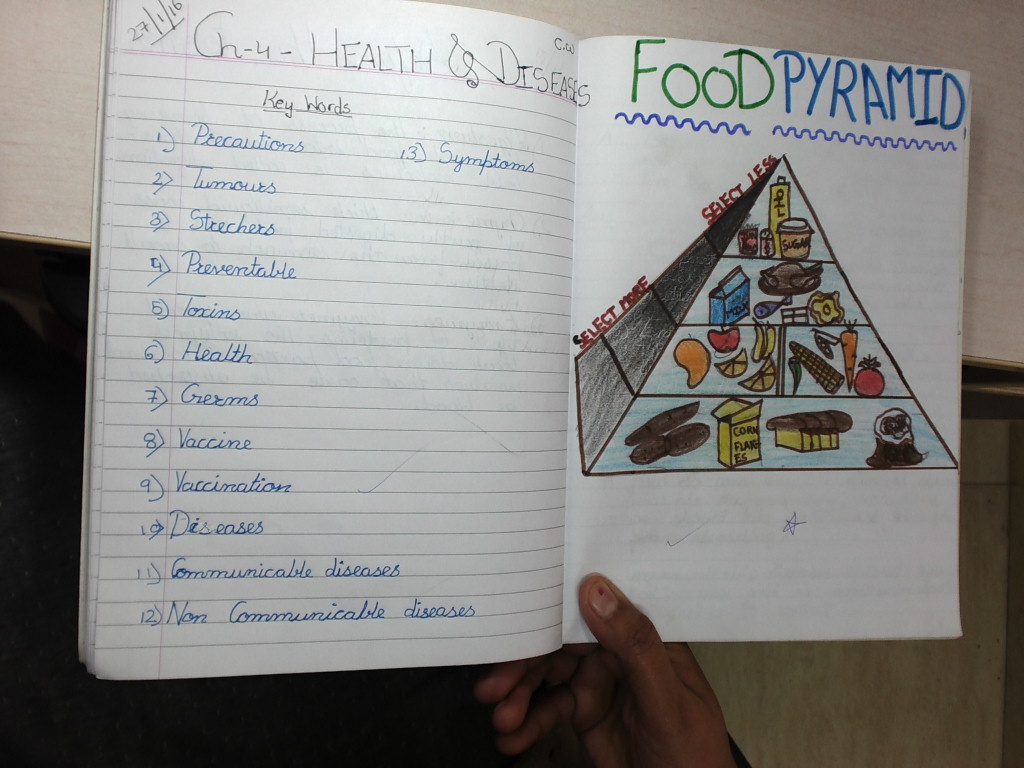 27/1/16
C.W
Ch-4 - HEALTH & DISEASES
Key Words
1) Precautions
2) Tumours
3) Strechers
4) Preventable
5) Toxins
6) Health
7) Germs
8) Vaccine
9) Vaccination
10) Diseases
11) Communicable diseases
12) Non Communicable diseases
13) Symptoms
FOOD PYRAMID
SELECT LESS
SELECT MORE
OIL
SUGAR
MILK
CORN
FLAK
ES